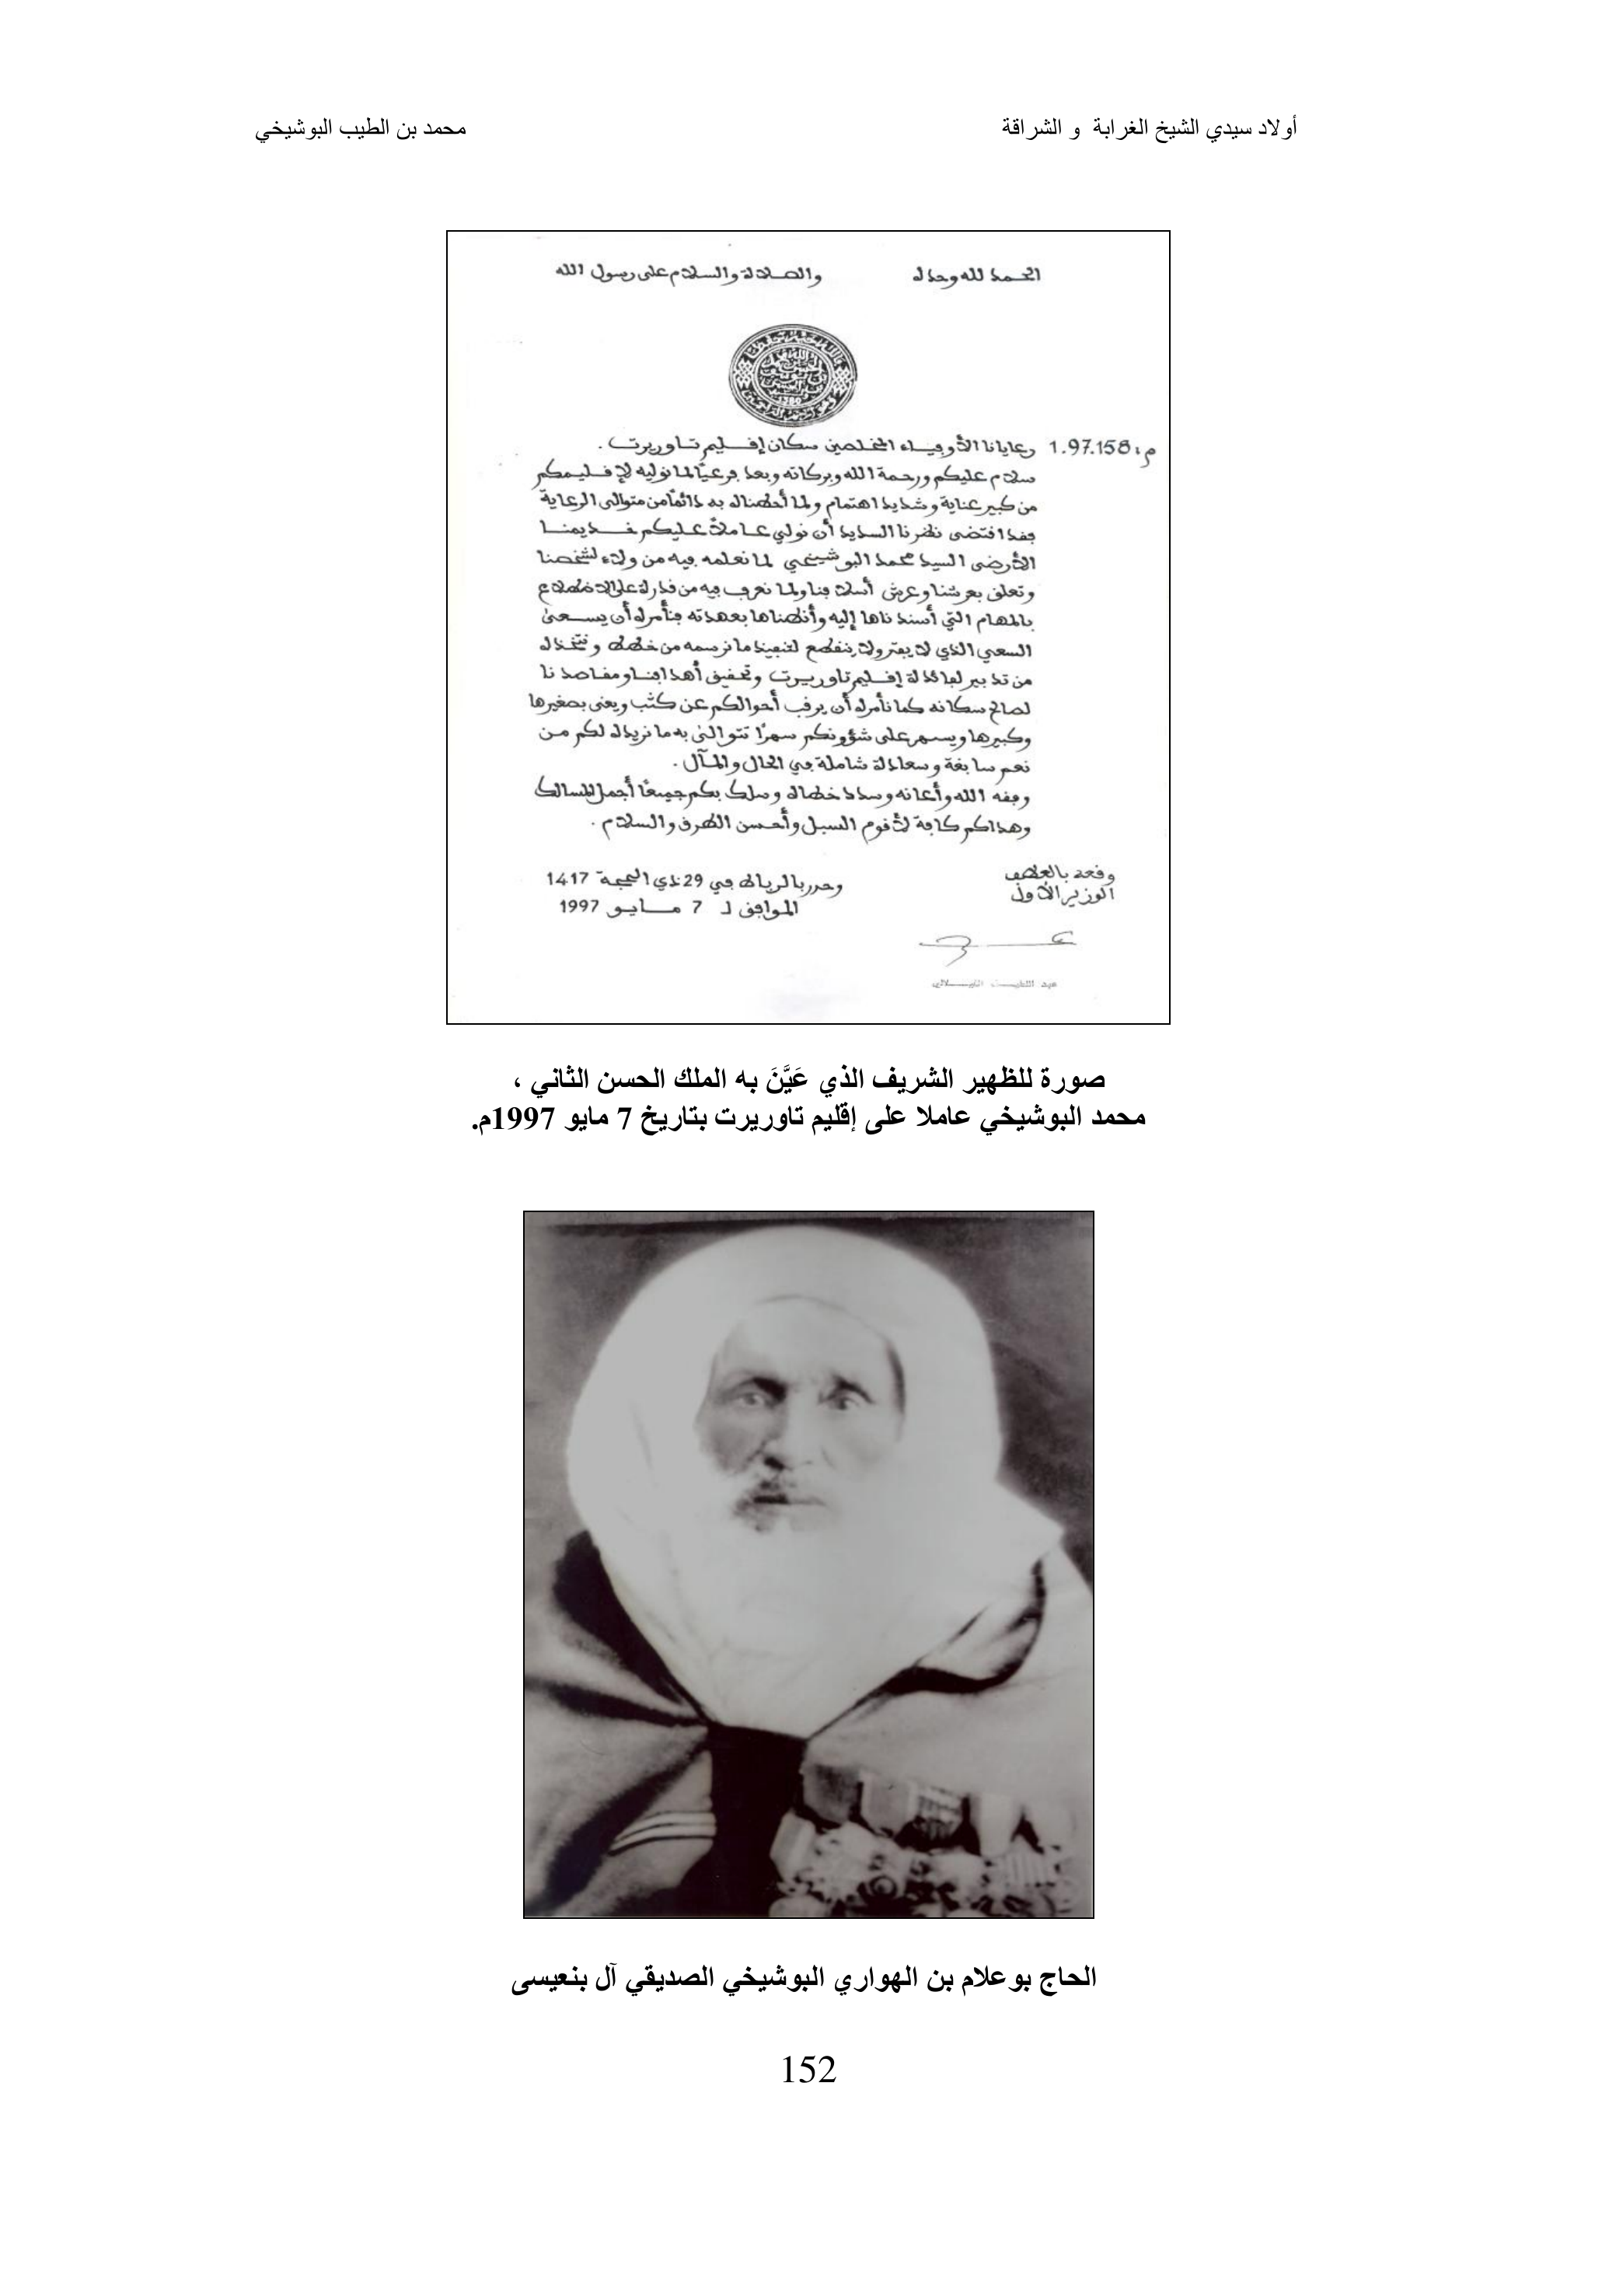 أولاد سيدي الشيخ الغرابة و الشراقة
محمد بن الطيب البوشيخي
الحمد لله وحده
والصلاة والسلام على رسول الله
1380
م: 1.97.158 رعايانا الأوفياء المخلصين سكان إقليم تاوريرت.
سلام عليكم ورحمة الله وبركاته وبعد فرعيًا لما نوليه لإقليمكم
من كبير عناية وشديد اهتمام ولما أحطناه به دائمًا من متوالى الرعاية
فقد اقتضى نظرنا السديد أن نولي عاملاً عليكم خديمنا
الأرضى السيد محمد البوشيخي لما نعلمه فيه من ولاء لشخصنا
وتعلق بعرشنا وعرش أسلافنا ولما نعرف فيه من قدرة على الاضطلاع
بالمهام التي أسندناها إليه وأنطناها بعهدته فنأمره أن يسعى
السعي الذي لا يفتر ولا ينقطع لتنفيذ ما نرسمه من خطط ونتخذه
من تدبير لفائدة إقليم تاوريرت وتحقيق أهدافنا ومقاصدنا
لصالح سكانه كما نأمره أن يرقب أحوالكم عن كثب ويعنى بصغيرها
وكبيرها ويسهر على شؤونكم سهرًا تتوالى به ما نريده لكم من
نعم سابغة وسعادة شاملة في الحال والمآل.
وفقه الله وأعانه وسدد خطاه وسلك بكم جميعًا أجمل المسالك
وهداكم كافة لأقوم السبل وأحسن الطرق والسلام.
وقعه بالعطف
الوزير الأول
وحرر بالرباط في 29 ذي الحجة 1417
الموافق لـ 7 مايو 1997
عبد اللطيف الفيلالي
صورة للظهير الشريف الذي عَيَّنَ به الملك الحسن الثاني ،
محمد البوشيخي عاملا على إقليم تاوريرت بتاريخ 7 مايو 1997م.
الحاج بوعلام بن الهواري البوشيخي الصديقي آل بنعيسى
152